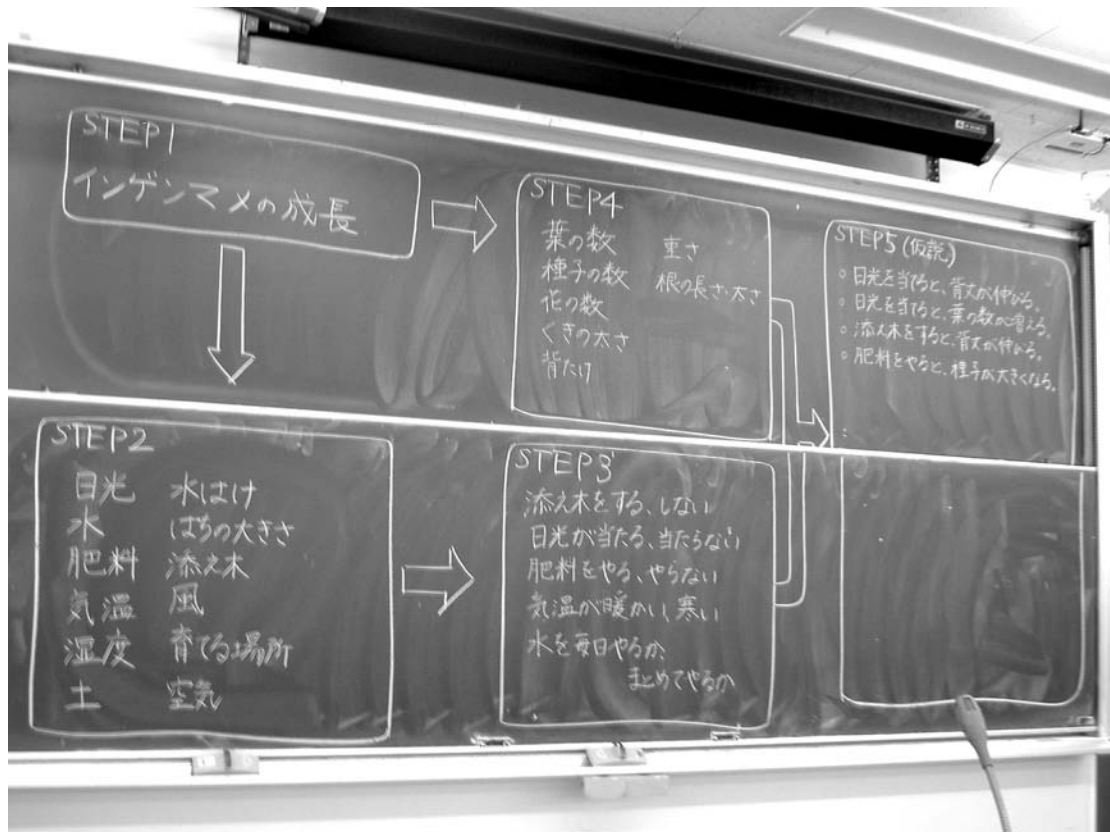 STEP1
インゲンマメの成長
STEP2
日光 水はけ
水 はちの大きさ
肥料 添え木
気温 風
湿度 育てる場所
土 空気
STEP3
添え木をする、しない
日光が当たる、当たらない
肥料をやる、やらない
気温が暖かい、寒い
水を毎日やるか、
まとめてやるか
STEP4
葉の数 重さ
種子の数 根の長さ・太さ
花の数
くきの太さ
背たけ
STEP5(仮説)
○ 日光を当てると、背丈が伸びる。
○ 日光を当てると、葉の数が増える。
○ 添え木をすると、背丈が伸びる。
○ 肥料をやると、種子が大きくなる。